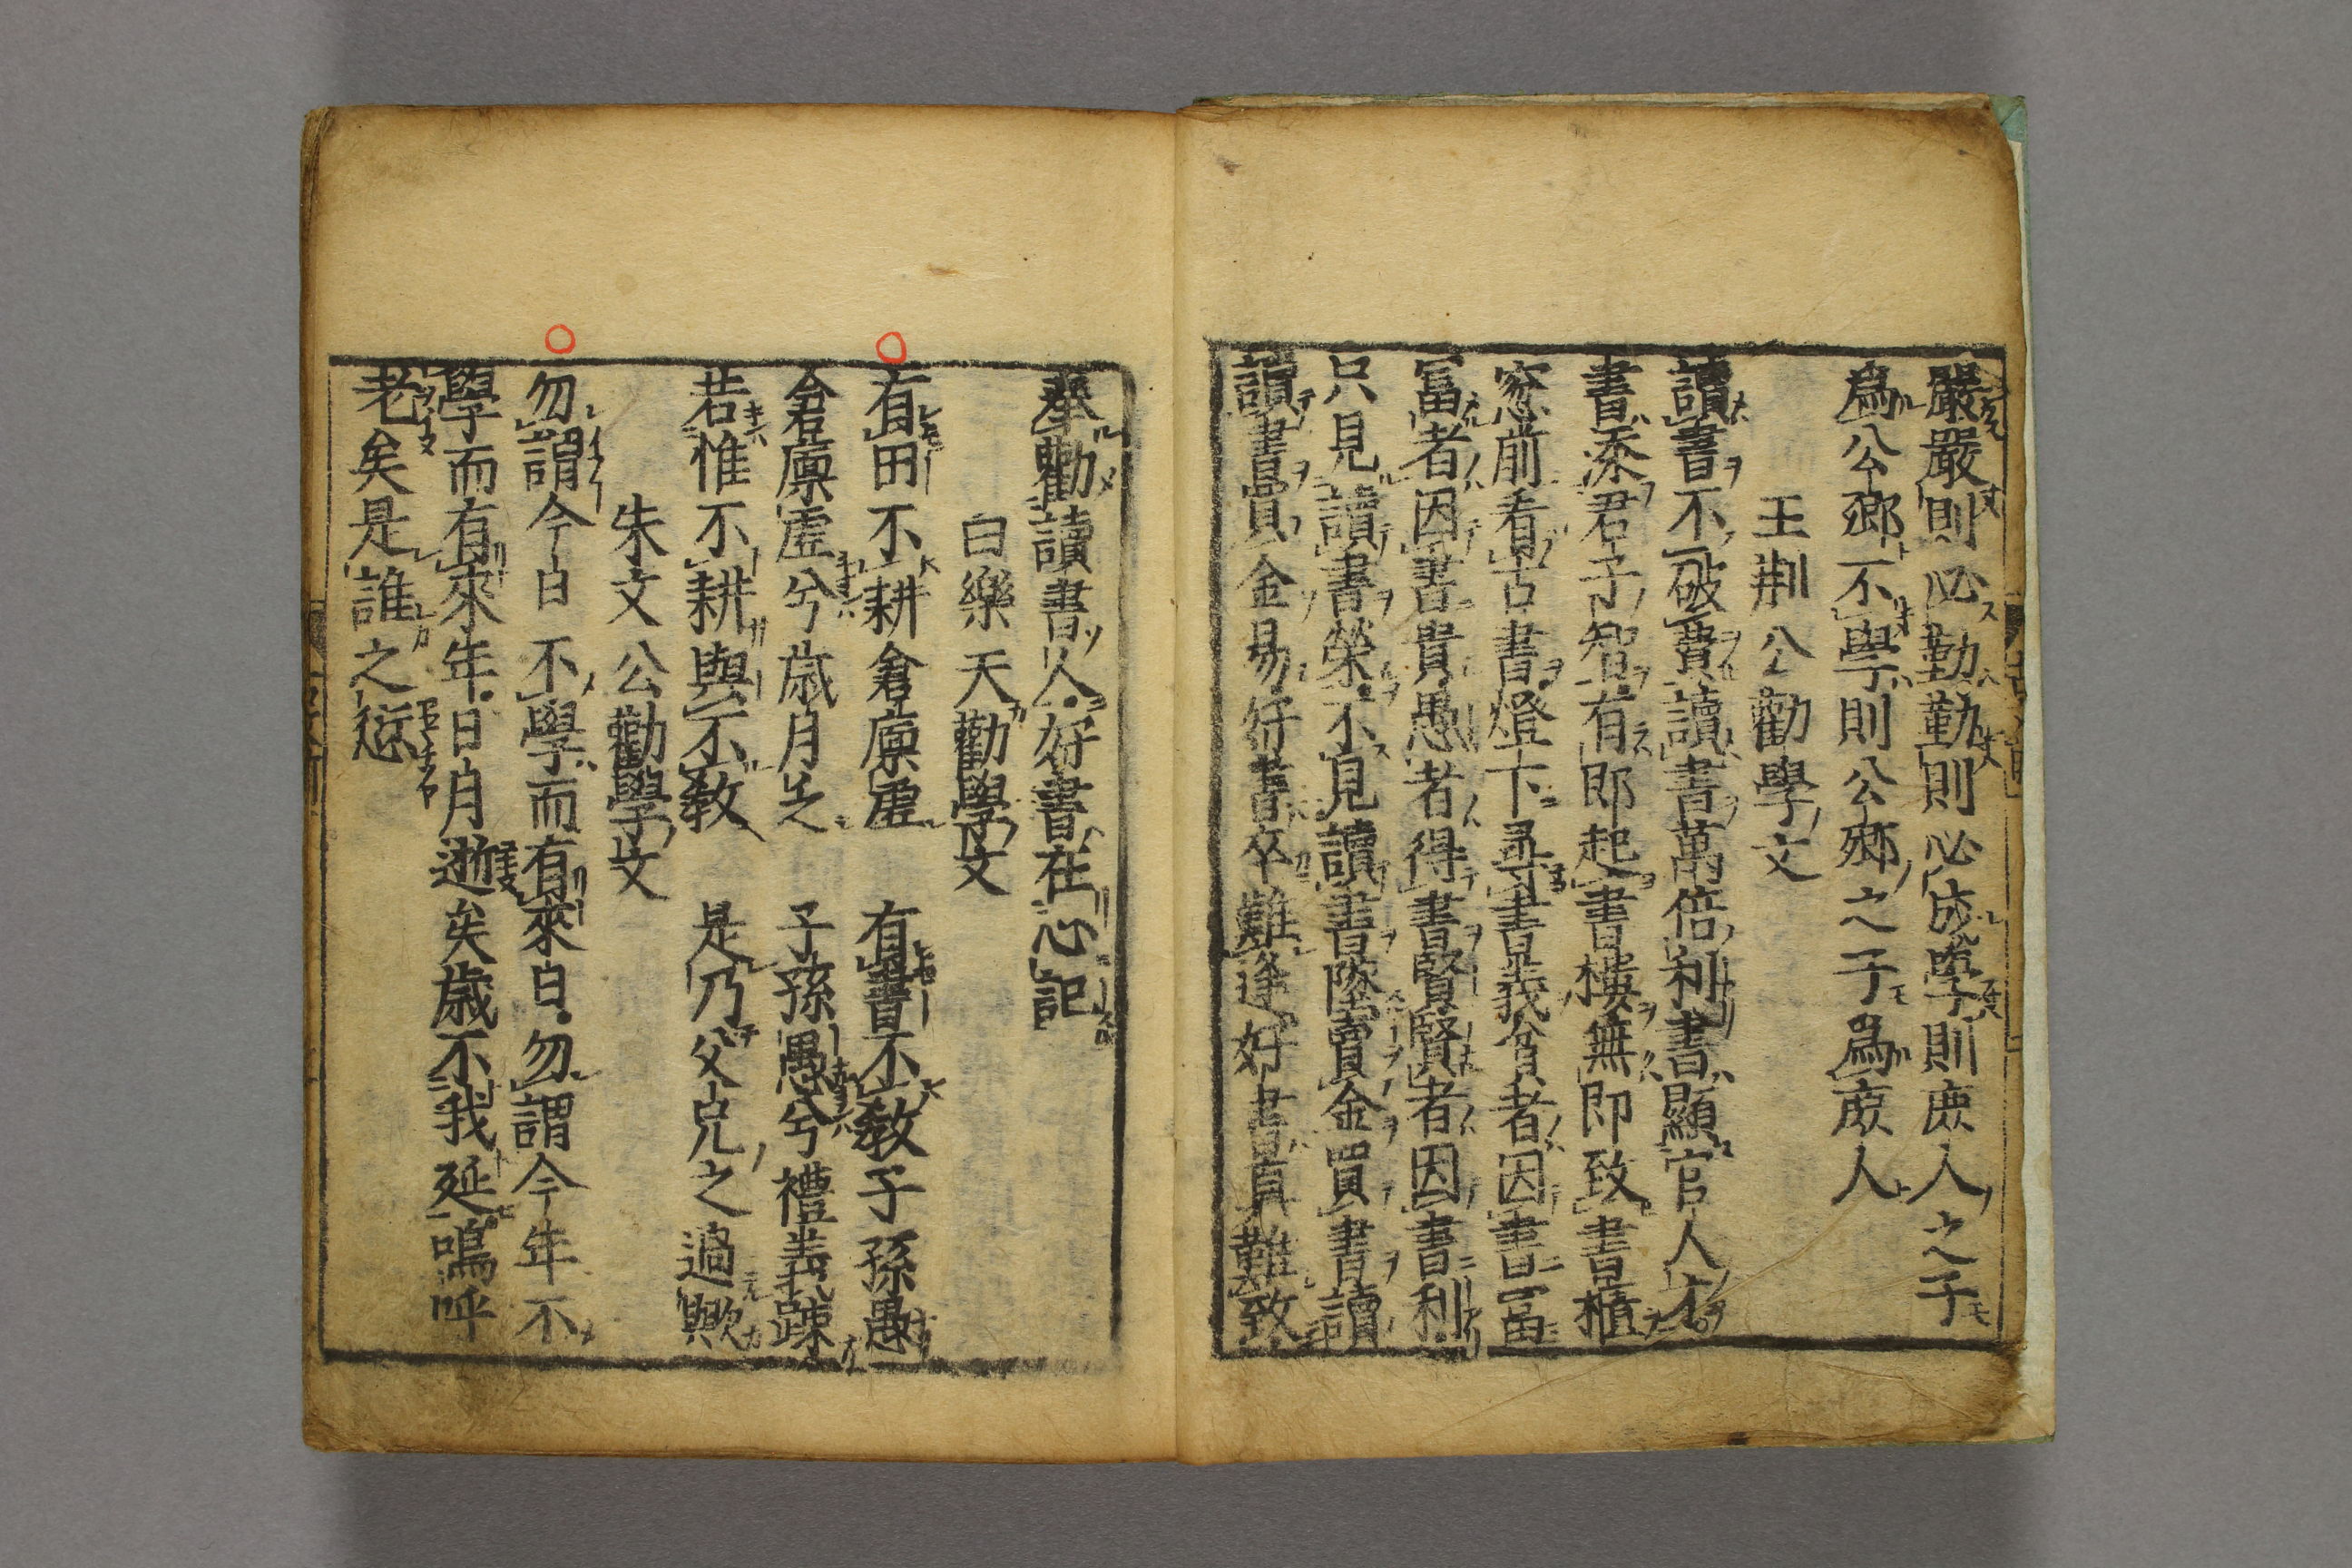 嚴嚴則必勤勤則必成學則庶人之子
爲公卿不學則公卿之子爲庶人
王荆公勸學文
讀書不破費讀書萬倍利書顯官人才
書添君子智有即起書樓無即致書櫃
窓前看古書燈下尋書義貧者因書富
冨者因書貴愚者得書賢賢者因書利
只見讀書榮不見讀書墜賣金買書讀
讀書買金易好書卒難逢好書眞難致
奉勸讀書人好書在心記
白樂天勸學文
有田不耕倉廪虚 有書不教子孫愚
倉廪虚兮歳月乏 子孫愚兮禮義疎
若惟不耕與不教 是乃父兄之過歟
朱文公勸學文
勿謂今日不學而有來日勿謂今年不
學而有來年日月逝矣歳不我延嗚呼
老矣是誰之愆